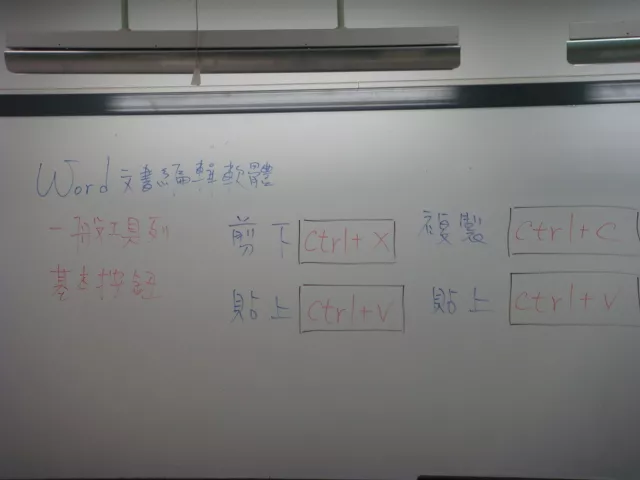 Word 文書編輯軟體
一般工具列 剪下 Ctrl+X 複製 Ctrl+C
基本按鈕 貼上 Ctrl+V 貼上 Ctrl+V